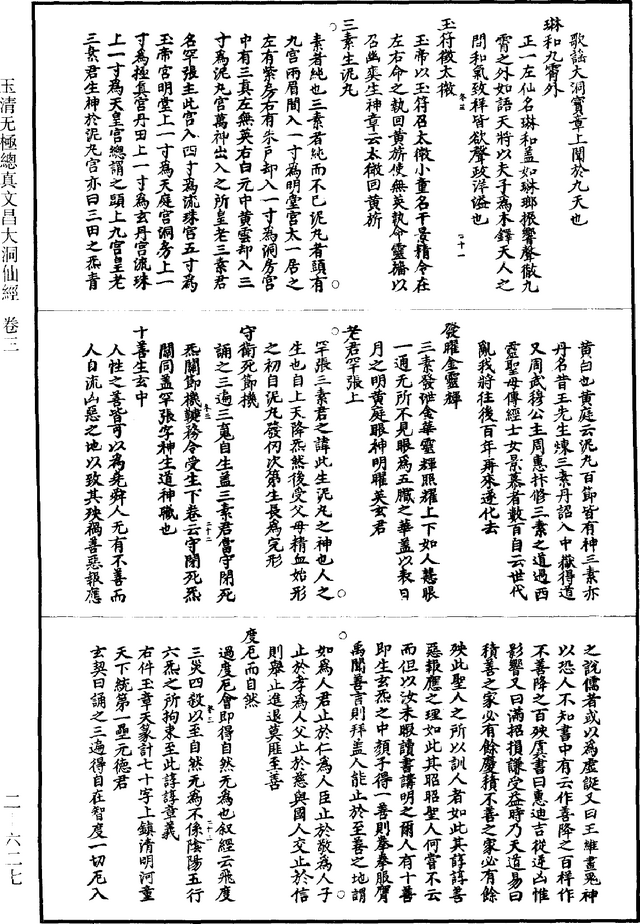 玉清无極總真文昌大洞仙經 卷三
二 六二七
歌謡大洞寶章上聞於九天也
琳和九霄外
正一左仙名琳和蓋如琳瑯振響聲徹九
霄之外如語天將以夫子為木鐸天人之
問和氣致祥皆欲聲政洋溢也
玉符徵太微
玉帝以玉符召太微小童名干景精令在
左右命之執回黃旂使無英執命靈旛以
召幽奕生神章云太微回黃旂
三素生泥丸
素者純也三素者純而不已泥丸者頭有
九宮兩眉間入一寸為明堂宮太一居之
左有紫房右有朱戶却入一寸為洞房宮
中有三真左無英右白元中黃雲却入三
寸為泥丸宮萬神出入之所皇老三素君
名罕張主此宮入四寸為流珠宮五寸為
玉帝宮明堂上一寸為天庭宮洞房上一
寸為極真宮丹田上一寸為玄丹宮流珠
上一寸為天皇宮總謂之頭上九宮皇老
三素君生神於泥丸宮亦曰三田之炁青
黃白也黃庭云泥丸百節皆有神三素亦
丹名昔王先生煉三素丹詔入中嶽得道
又周武修公主周惠抃修三素之道過西
靈聖母傳經士女景慕者數百自云世代
亂我將往後百年再來遂化去
發曜金靈輝
三素發泄金華靈輝照耀上下如人慧眼
一通无所不見眼為五臟之華蓋以表日
月之明黃庭眼神明曜英玄君
老君罕張上
罕張三素君之諱此生泥丸之神也人之
生也自上天降炁然後受父母精血始形
之初自泥丸發何次第生長為完形
守衛死節機
誦之三遍三䰟自生蓋三素君當守閉死
炁關節機轉務令受生下卷云守閉死炁
關同蓋罕張字神生道神職也
十善生玄中
人性之善皆可以為堯舜人无有不善而
人自流凶惡之地以致其殃禍善惡報應
之說儒者或以為虛誕又曰王維畫鬼神
以恐人不知書中有云作善降之百祥作
不善降之百殃虞書曰惠迪吉從逆凶惟
影響又曰滿招損謙受益時乃天道易曰
積善之家必有餘慶積不善之家必有餘
殃此聖人之所以訓人者如此其諄諄善
惡報應之理如此其昭昭聖人何嘗不云
而但以汝未暇讀書講明之爾人有十善
即生玄炁之中顏子得一善則拳拳服膺
禹聞善言則拜蓋人能止於至善之地謂
如為人君止於仁為人臣止於敬為人子
止於孝為人父止於慈與國人交止於信
則舉止進退莫匪至善
度厄而自然
過度厄會即得自然无為也叙經云飛度
三災四殺以至自然无為不係陰陽五行
六炁之所拘束至此諄諄章義
右件玉章天篆計七十字上鎮清明河童
天下統第一壘元德君
玄契曰誦之三遍得自在智度一切厄入